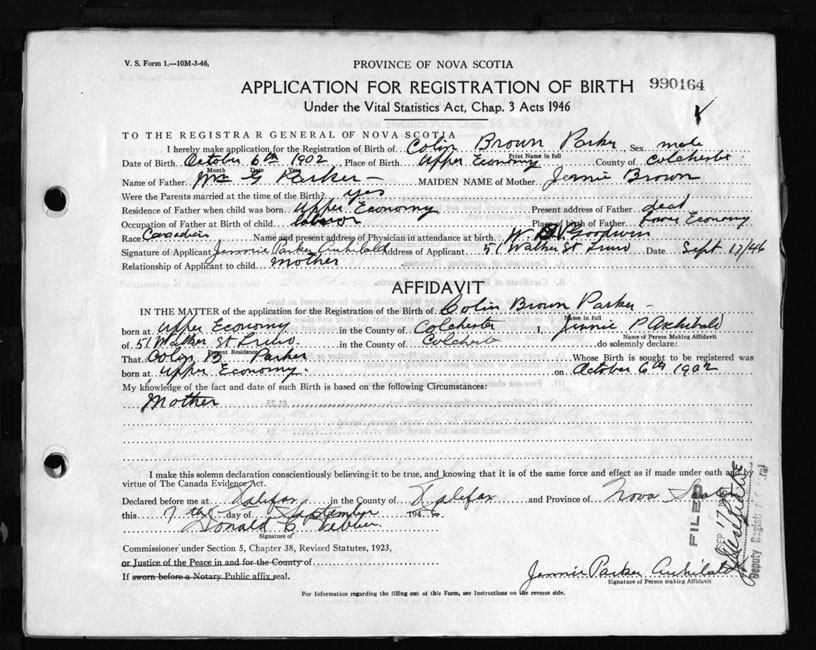 V. S. Form 1.—10M-3-46,
PROVINCE OF NOVA SCOTIA
APPLICATION FOR REGISTRATION OF BIRTH 990164
Under the Vital Statistics Act, Chap. 3 Acts 1946
TO THE REGISTRAR GENERAL OF NOVA SCOTIA
I hereby make application for the Registration of Birth of Colin Brown Parker, Sex male
Print Name in full
Date of Birth October 6th 1902, Place of Birth Upper Economy County of Colchester
Month Date Year
Name of Father Wm G Parker MAIDEN NAME of Mother Jennie Brown
Were the Parents married at the time of the Birth? yes
Residence of Father when child was born Upper Economy Present address of Father dead
Occupation of Father at Birth of child labour Place of Birth of Father Economy
Race Canadian Name and present address of Physician in attendance at birth W. Goodwin
Signature of Applicant Jennie Parker Archibald Address of Applicant 51 Walker St Truro Date Sept 17/46
Relationship of Applicant to child mother
AFFIDAVIT
IN THE MATTER of the application for the Registration of the Birth of Colin Brown Parker
Name in full
born at Upper Economy in the County of Colchester I, Jennie P Archibald
Name of Person Making Affidavit
of 51 Walker St Truro in the County of Colchester do solemnly declare:
Present Residence
That Colin B Parker Whose Birth is sought to be registered was
born at Upper Economy on October 6th 1902
My knowledge of the fact and date of such Birth is based on the following Circumstances:
Mother
I make this solemn declaration conscientiously believing it to be true, and knowing that it is of the same force and effect as if made under oath and by
virtue of The Canada Evidence Act.
Declared before me at Halifax in the County of Halifax and Province of Nova Scotia
this 17th day of September
Donald C
Signature of
Commissioner under Section 5, Chapter 38, Revised Statutes, 1923,
or Justice of the Peace in and for the County of
If sworn before a Notary Public affix seal.
Jennie Parker Archibald
Signature of Person making Affidavit
For Information regarding the filling out of this Form, see Instructions on the reverse side.
FILED
SEP 17
Deputy Registrar